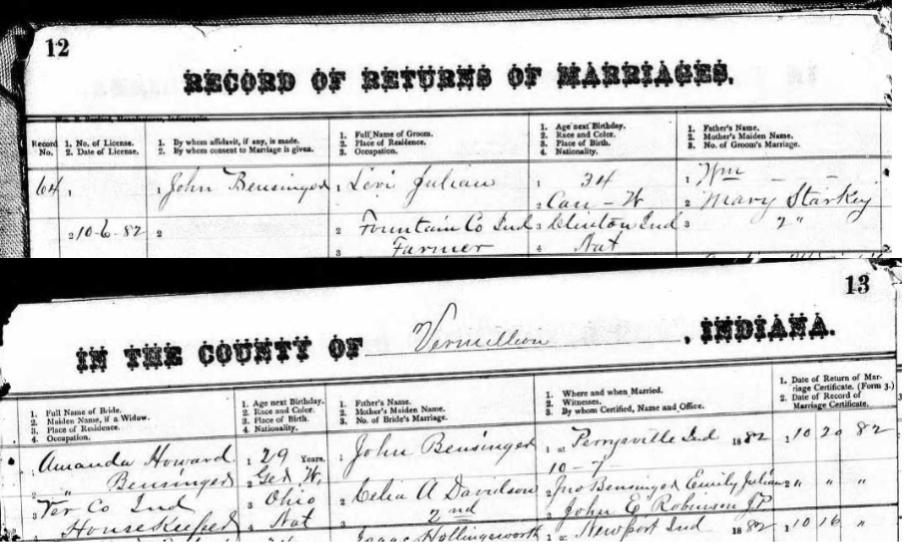 12
RECORD OF RETURNS OF MARRIAGES.
Record No.
1. No. of License.
2. Date of License.
1. By whom affidavit, if any, is made.
2. By whom consent to Marriage is given.
1. Full Name of Groom.
2. Place of Residence.
3. Occupation.
1. Age next Birthday.
2. Race and Color.
3. Place of Birth.
4. Nationality.
1. Father's Name.
2. Mother's Maiden Name.
3. No. of Groom's Marriage.
64 1 1 John Bensinger 1 Levi Julian 1 34 1 Wm
2 Cau - W 2 Mary Starkey
2 10-6-82 2 2 Fountain Co Ind 3 Clinton Ind 3 2"
3 Farmer 4 Nat
13
IN THE COUNTY OF Vermillion, INDIANA.
1. Full Name of Bride.
2. Maiden Name, if a Widow.
3. Place of Residence.
4. Occupation.
1. Age next Birthday.
2. Race and Color.
3. Place of Birth.
4. Nationality.
1. Father's Name.
2. Mother's Maiden Name.
3. No. of Bride's Marriage.
1. Where and when Married.
2. Witnesses.
3. By whom Certified, Name and Office.
1. Date of Return of Marriage Certificate. (Form 3.)
2. Date of Record of Marriage Certificate.
1 Amanda Howard 1 29 Years. 1 John Bensinger 1 at Perrysville Ind 1882 1 10 20 82
2 " Bensinger 2 W. 10-7-
3 Ver Co Ind 3 Ohio 2 Celia A Davidson 2 Jno Bensinger Emily Julian 2 " " "
4 Housekeeper 4 Nat 3 2nd 3 John E Robinson JP
Isaac Hollingsworth 1 at Newport Ind 1882 1 10 16 "